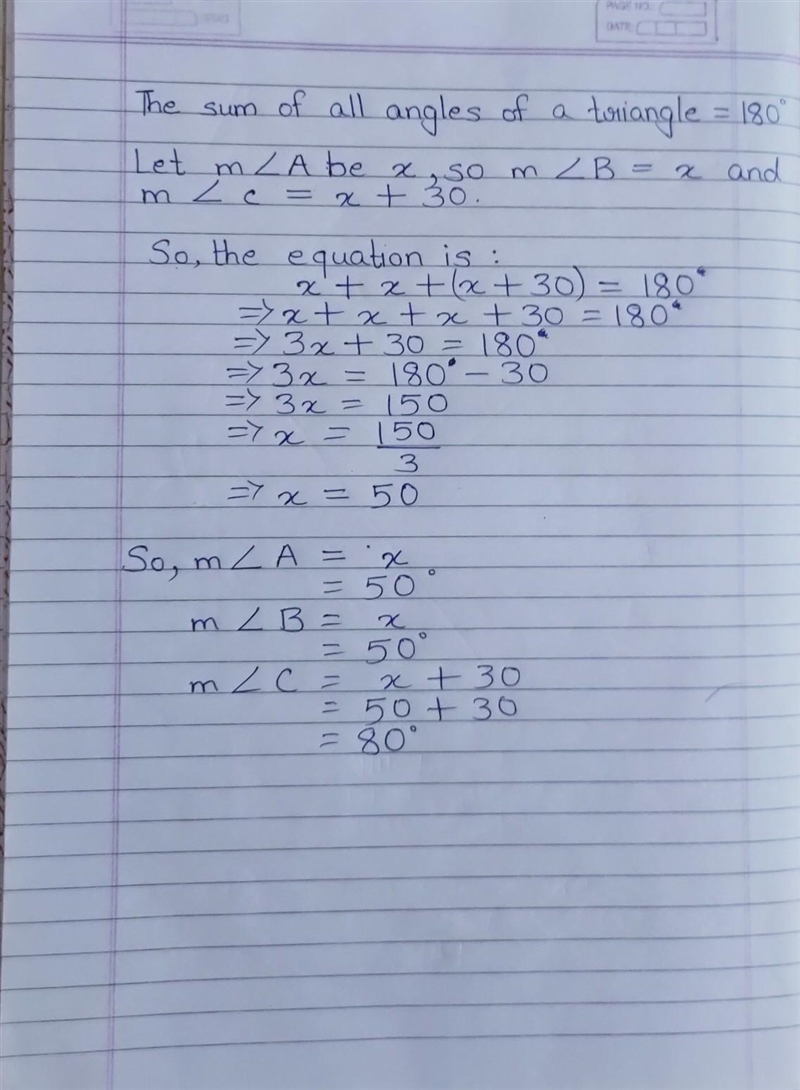 PAGE NO.
DATE
The sum of all angles of a triangle = 180°
Let m∠A be x, so m∠B = x and
m∠c = x + 30.
So, the equation is :
x + x + (x + 30) = 180°
⇒ x + x + x + 30 = 180°
⇒ 3x + 30 = 180°
⇒ 3x = 180° - 30
⇒ 3x = 150
⇒ x = 150
3
⇒ x = 50
So, m∠A = x
= 50°
m∠B = x
= 50°
m∠C = x + 30
= 50 + 30
= 80°